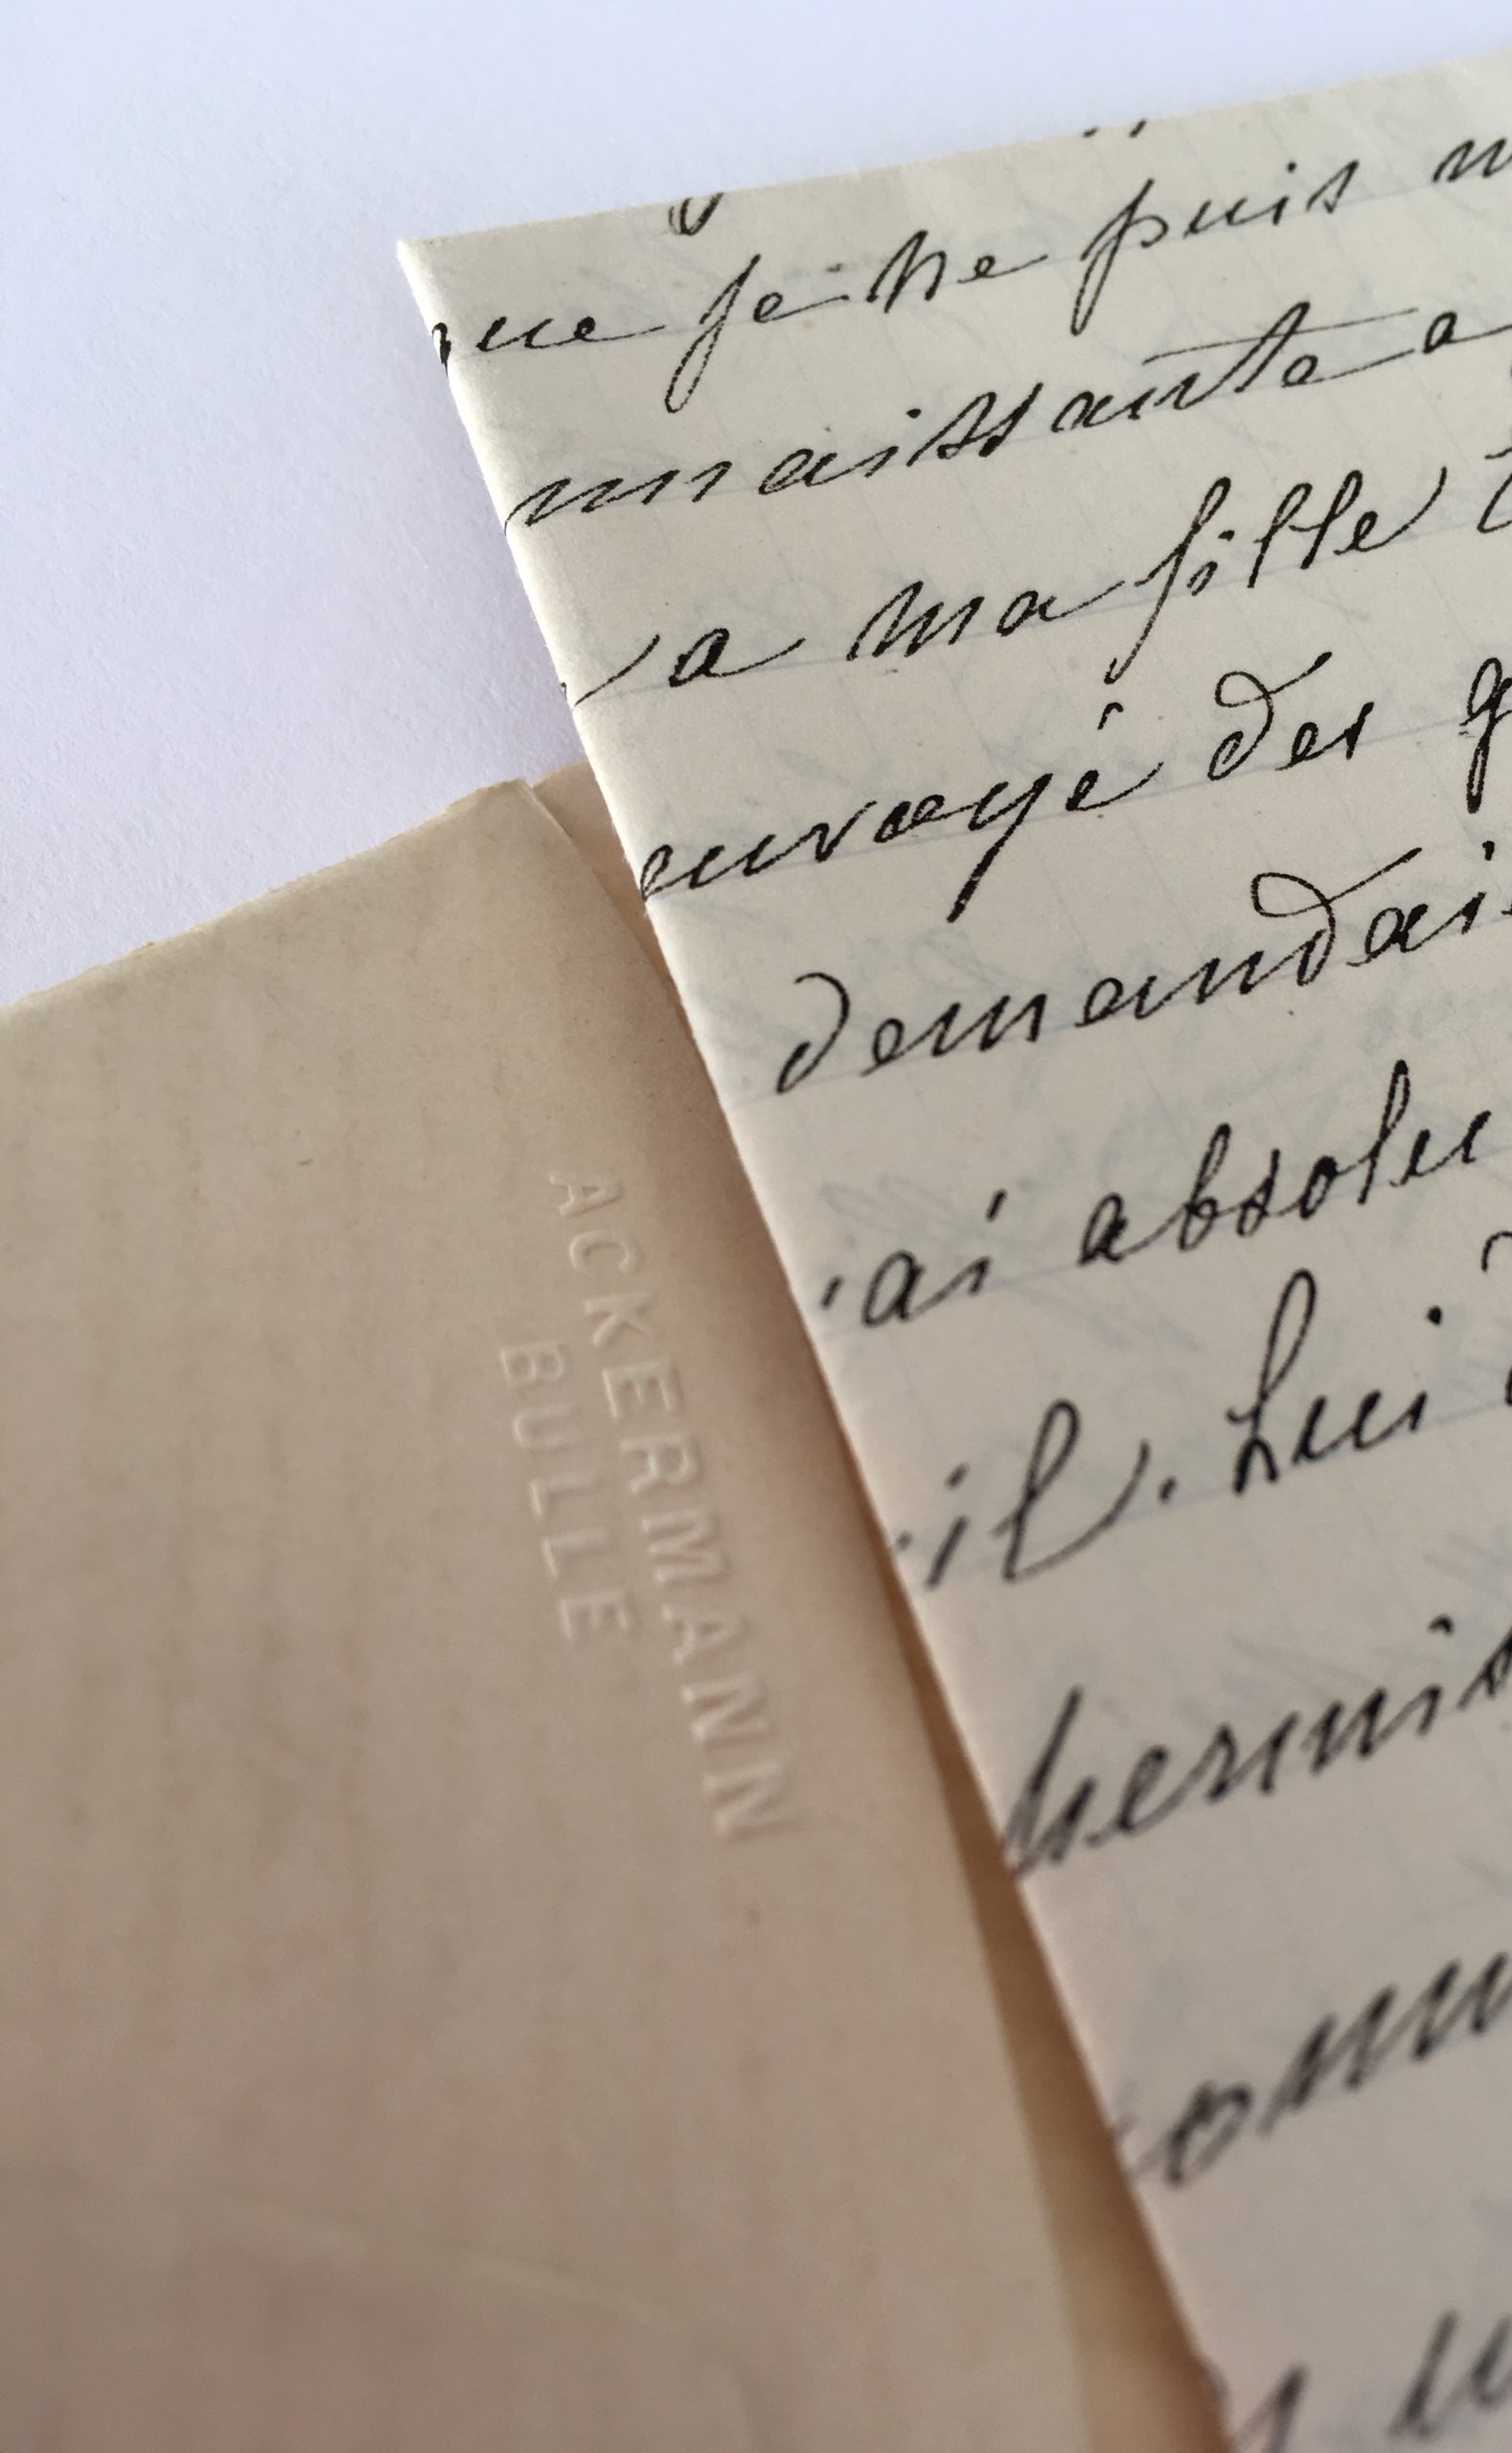 que je ne puis
naissante a
a ma fille
envoyé des
demandai
'ai absolu
il. Lui
permis
ACKERMANN
BULLE